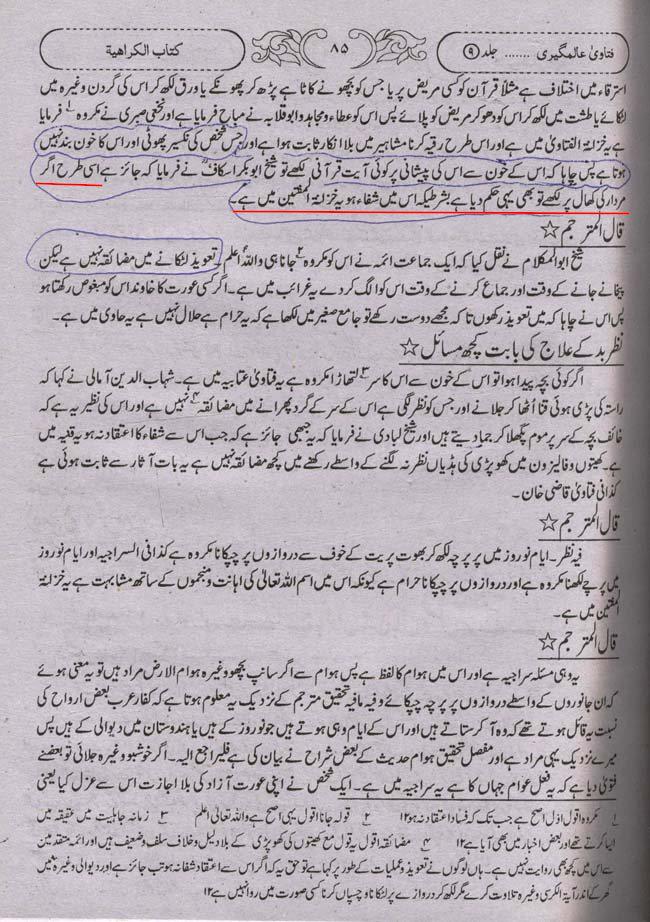 فتاویٰ عالمگیری ....... جلد ۹
۸۵
کتاب الکراھیة
استرقاء میں اختلاف ہے مثلاً قرآن کو کسی مریض پر یا جس کو بچھو نے کاٹا ہے پڑھ کر پھونکے یا ورق لکھ کر اس کی گردن وغیرہ میں
لٹکائے یا طشت میں لکھ کر اس کو دھو کر مریض کو پلائے پس اس کو عطاء و مجاہد و ابو قلابہ نے مباح فرمایا ہے اور نخعی و بصری نے مکروہ فرمایا
ہے یہ خزانۃ الفتاویٰ میں ہے اور اس طرح رقیہ کرنا مشاہیر میں بلا انکار ثابت ہوا ہے اور جس شخص کی نکسیر پھوٹی اور اس کا خون بند نہیں
ہوتا ہے پس چاہا کہ اس کے خون سے اس کی پیشانی پر کوئی آیت قرآنی لکھے تو شیخ ابوبکر اسکافؒ نے فرمایا کہ جائز ہے اسی طرح اگر
مردار کی کھال پر لکھے تو بھی یہی حکم دیا ہے بشرطیکہ اس میں شفاء ہو یہ خزانۃ المفتین میں ہے۔
قال المترجم ☆
شیخ ابوالمکلام نے نقل کیا کہ ایک جماعت ائمہ نے اس کو مکروہ ۲ جانا ہی واللہ اعلم۔ تعویذ لٹکانے میں مضائقہ نہیں ہے لیکن
پیخانے جانے کے وقت اور جماع کرنے کے وقت اس کو الگ کر دے یہ غرائب میں ہے۔ اگر کسی عورت کا خاوند اس کو مبغوض رکھتا ہو
پس اس نے چاہا کہ میں تعویذ رکھوں تا کہ مجھے دوست رکھے تو جامع صغیر میں لکھا ہے کہ یہ حرام ہے حلال نہیں ہے یہ حاوی میں ہے۔
نظر بد کے علاج کی بابت کچھ مسائل ☆
اگر کوئی بچہ پیدا ہوا تو اس کے خون سے اس کا سر ۳ لتھاڑنا مکروہ ہے یہ فتاویٰ عتابیہ میں ہے۔ شہاب الدین آمالی نے کہا کہ
راستہ کی پڑی ہوئی قنا اُٹھا کر جلانے اور جس کو نظر لگی ہے اس کے سر کے گرد پھرانے میں مضائقہ ۴ نہیں ہے اور اس کی نظیر یہ ہے کہ
خائف بچہ کے سر پر موم پگھلا کر جما دیتے ہیں اور شیخ لبادی نے فرمایا کہ یہ جبھی جائز ہے کہ جب اس سے شفاء کا اعتقاد نہ ہو یہ قنیہ میں
ہے۔ کھیتوں و فالیزوں میں کھوپڑی کی ہڈیاں نظر نہ لگنے کے واسطے رکھنے میں کچھ مضائقہ نہیں ہے یہ بات آثار سے ثابت ہوئی ہے
کذافی فتاویٰ قاضی خان۔
قال المترجم ☆
فیہ نظر۔ ایام نو روز میں پرچہ لکھ کر بھوت پریت کے خوف سے دروازوں پر چپکانا مکروہ ہے کذافی السراجیہ اور ایام نو روز
میں پرچے لکھنا مکروہ ہے اور دروازوں پر چپکانا حرام ہے کیونکہ اس میں اسم اللہ تعالیٰ کی اہانت و منجموں کے ساتھ مشابہت ہے یہ خزانۃ
المفتین میں ہے۔
قال المترجم ☆
یہ وہی مسئلہ سراجیہ ہے اور اس میں ہوام کا لفظ ہے پس ہوام سے اگر سانپ بچھو وغیرہ ہوام الارض مراد ہیں تو یہ معنی ہوئے
کہ ان جانوروں کے واسطے دروازوں پر پرچہ چپکائے و فیہ مافیہ تحقیق مترجم کے نزدیک یہ معلوم ہوتا ہے کہ کفار عرب بعض ارواح کی
نسبت یہ قائل ہوتے تھے کہ وہ آ کر ستاتے ہیں اور اس کے ایام وہی ہوتے ہیں جو نو روز کے ہیں یا ہندوستان میں دیوالی کے ہیں پس
میرے نزدیک یہی مراد ہے اور مفصل تحقیق ہوام حدیث کے بعض شراح نے بیان کی ہے فلیراجع الیہ۔ اگر خوشبو وغیرہ جلائی تو بعضے
فتویٰ دیا ہے کہ یہ فعل عوام جہاں کا ہے یہ سراجیہ میں ہے۔ ایک شخص نے اپنی عورت آزاد کی بلا اجازت اس سے عزل کیا یعنی
۱ مکروہ اقول اوّل اصح ہے جب تک کہ فساد اعتقاد نہ ہو ۱۲ ۲ قولہ جانا اقول یہی اصح ہے واللہ تعالیٰ اعلم ۳ زمانہ جاہلیت میں عقیقہ میں
ایسا کرتے تھے اور بعض اخبار میں بھی آیا ہے ۱۲ ۴ مضائقہ اقول یہ قول مع کھیتوں کی کھوپڑی کے بلا دلیل و خلاف سلف و ضعیف ہیں اور ائمہ متقدمین
سے اس میں کچھ بھی روایت نہیں ہے۔ ہاں لوگوں نے تعویذ و عملیات کے طور پر کہا ہے تو حق یہ کہ اگر اس سے اعتقاد شفانہ ہو تب جائز ہے اور دیوالی وغیرہ میں
گھر کے اندر آیۃ الکرسی وغیرہ تلاوت کرے مگر لکھ کر دروازے پر لٹکانا و چسپاں کرنا کسی صورت میں روا نہیں ہے ۱۲